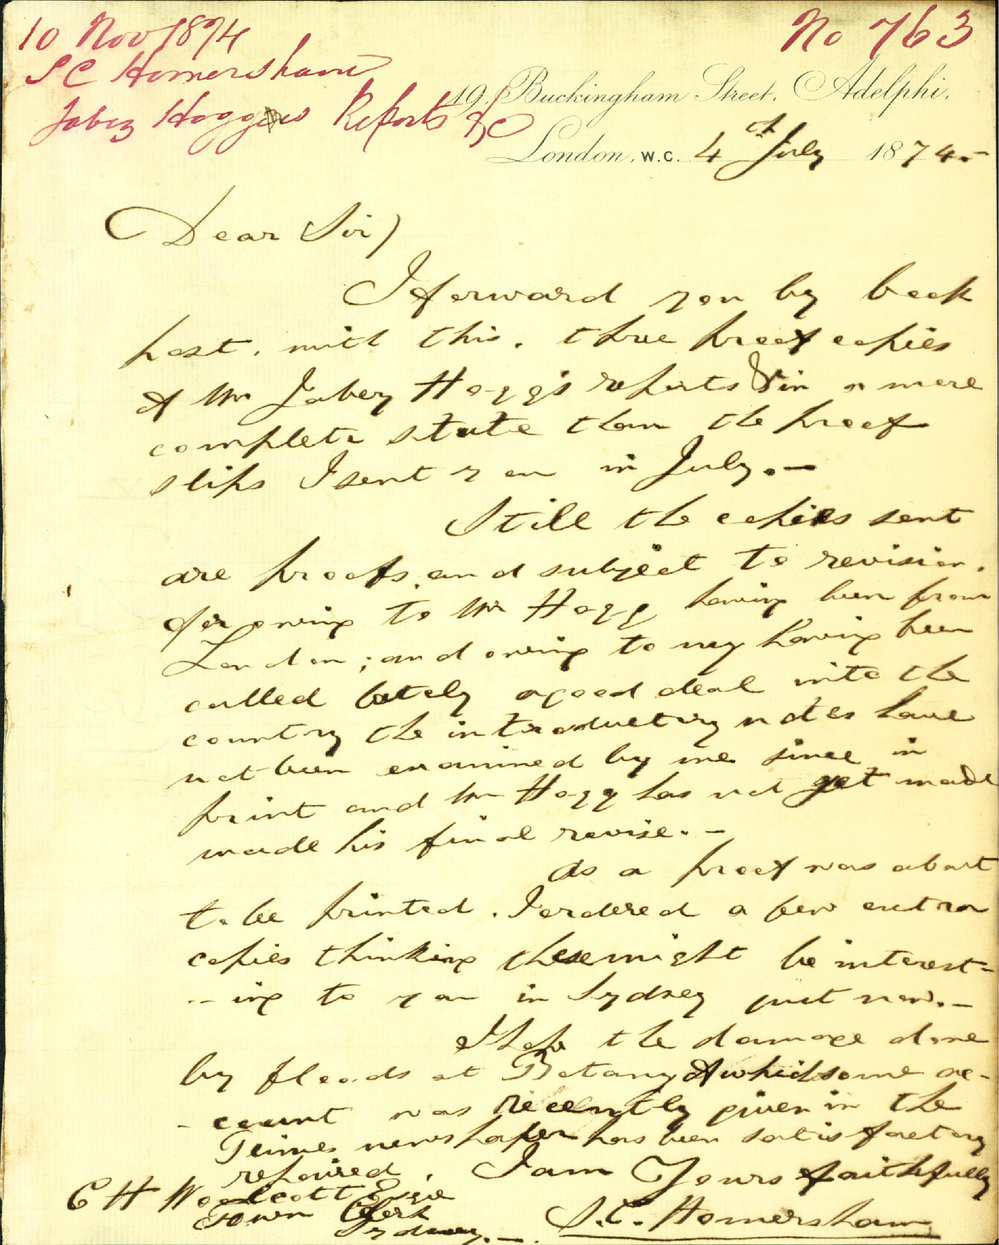 10 Nov 1874
No 763
S C Homersham
Jabez Hoggs Reports &c
19, Buckingham Street, Adelphi,
London, W.C. 4th July 1874.-
Dear Sir)
I forward you by book
post, with this, three proof copies
of Mr Jabez Hogg's reports & in a more
complete state than the proof
slips I sent you in July.-
Still the copies sent
are proofs, and subject to revision,
for owing to Mr Hogg having been from
London; and owing to my having been
called lately a good deal into the
country the introductory notes have
not been examined by me since in
print and Mr Hogg has not yet made
made his final revise.-
As a proof was about
to be printed, I ordered a few extra
copies thinking these might be interest-
--ing to you in Sydney just now.-
I hope the damage done
by floods at Botany of which some ac-
-count was recently given in the
Times newspaper has been satisfactory
repaired. I am Yours faithfully
C H Woolcott Esqre
Town Clerk
Sydney.-. S.C. Homersham